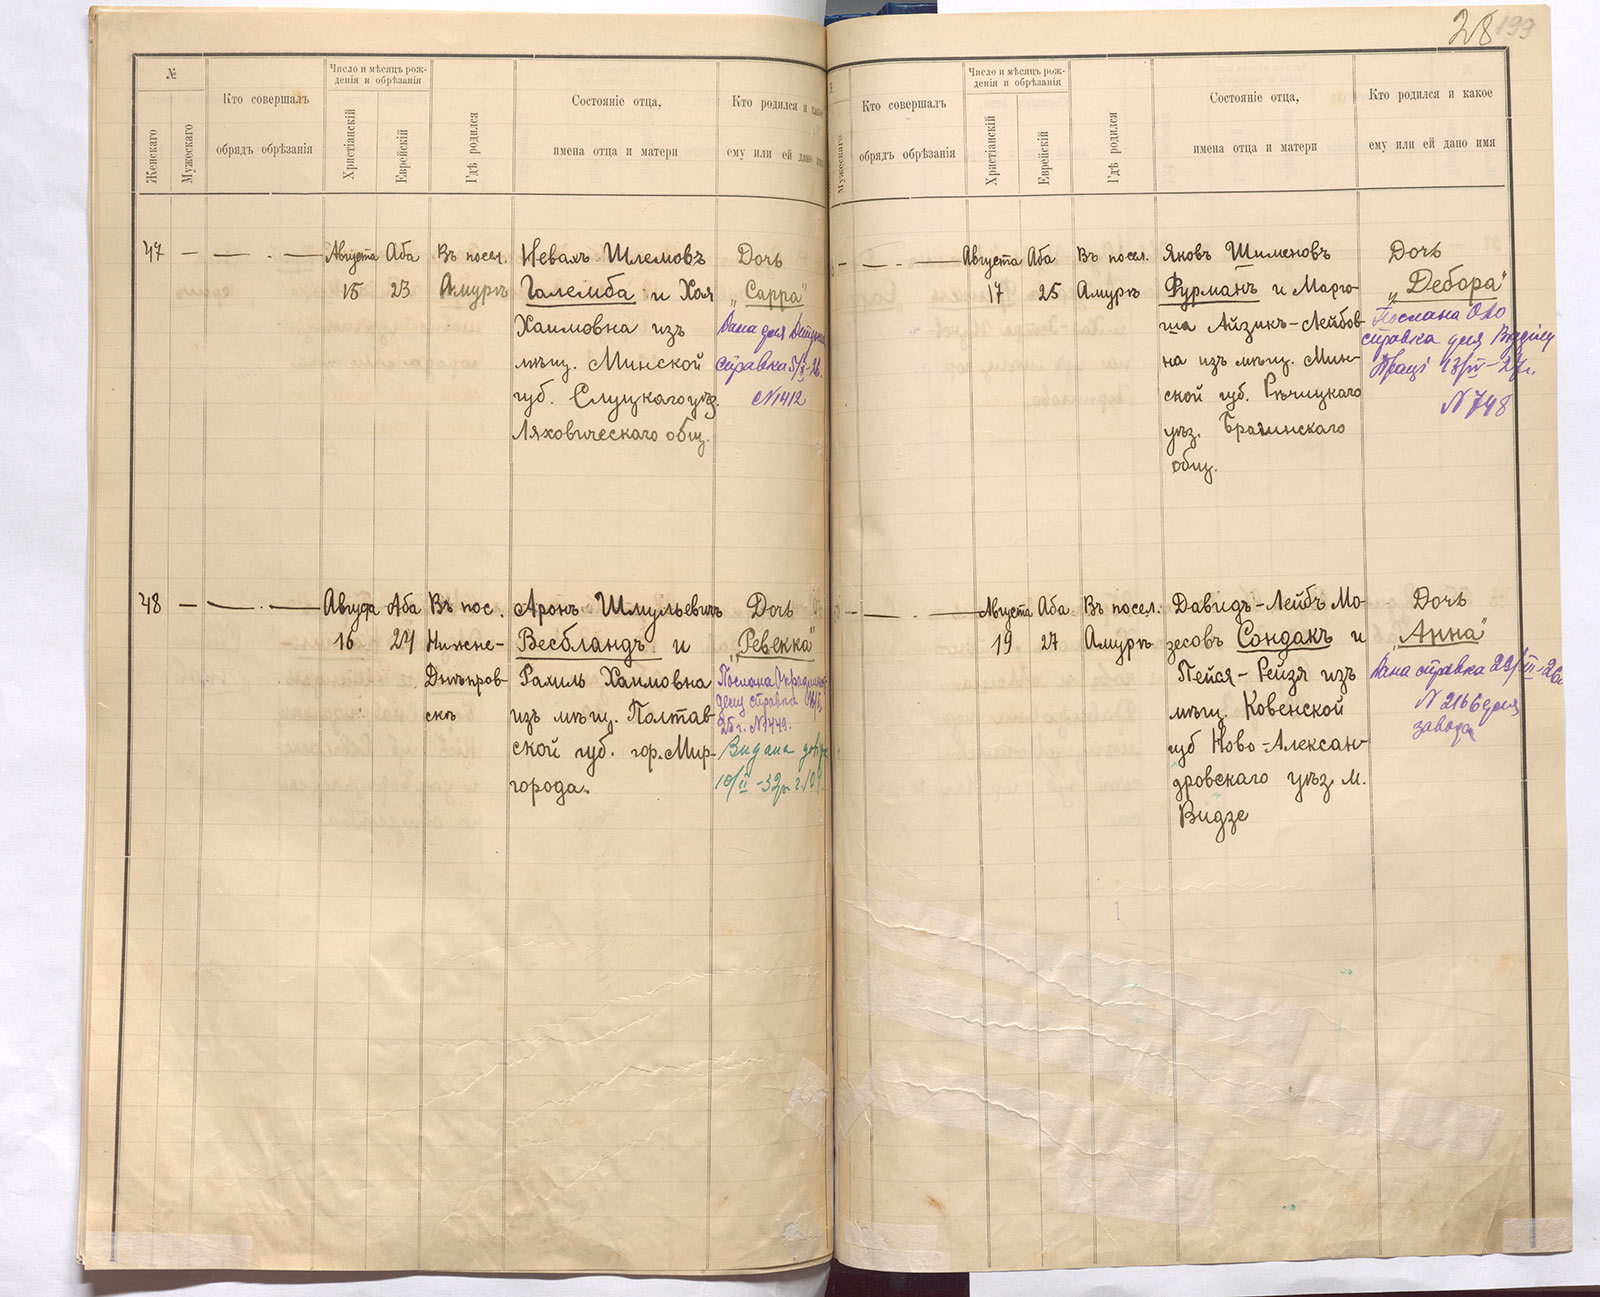 28 199
№
Женскаго
Мужескаго
Кто совершалъ
обрядъ обрѣзанія
Число и мѣсяцъ рож-
денія и обрѣзанія
Христіанскій
Еврейскій
Гдѣ родился
Состояніе отца,
имена отца и матери
Кто родился и какое
ему или ей дано имя
47
Августа
15
Аба
23
Въ посел.
Амурѣ
Невахъ Шлемовъ
Галемба и Хая
Хаимовна изъ
мѣщ. Минской
губ. Слуцкаго уѣз.
Ляховическаго общ.
Дочь
„Сарра"
Дана для
справка 5/X-26.
№1412
48
Августа
16
Аба
24
Въ пос.
Нижне-
Днѣпров-
скѣ
Аронъ Шмульевичъ
Весбландъ и
Рахиль Хаимовна
изъ мѣщ. Полтав-
ской губ. гор. Мир-
города.
Дочь
„Ревекка"
Послана
справка
25 г. №7449.
Видана
10/II-32р.
Мужескаго
Кто совершалъ
обрядъ обрѣзанія
Число и мѣсяцъ рож-
денія и обрѣзанія
Христіанскій
Еврейскій
Гдѣ родился
Состояніе отца,
имена отца и матери
Кто родился и какое
ему или ей дано имя
Августа
17
Аба
25
Въ посел.
Амурѣ
Яковъ Шименовъ
Фурманъ и Марго-
ша Айзикъ-Лейбов-
на изъ мѣщ. Мин-
ской губ. Рѣчицкаго
уѣз. Брагинскаго
общ.
Дочь
„Дебора"
Послана
справка для
Праці 13/IV-27г.
№748
Августа
19
Аба
27
Въ посел.
Амурѣ
Давидъ-Лейбъ Мо-
зесовъ Сондакъ и
Пейся-Рейзя изъ
мѣщ. Ковенской
губ Ново-Алексан-
дровскаго уѣз м.
Видзе
Дочь
„Анна"
Дана справка 22/III-26г
№2166 для
завода